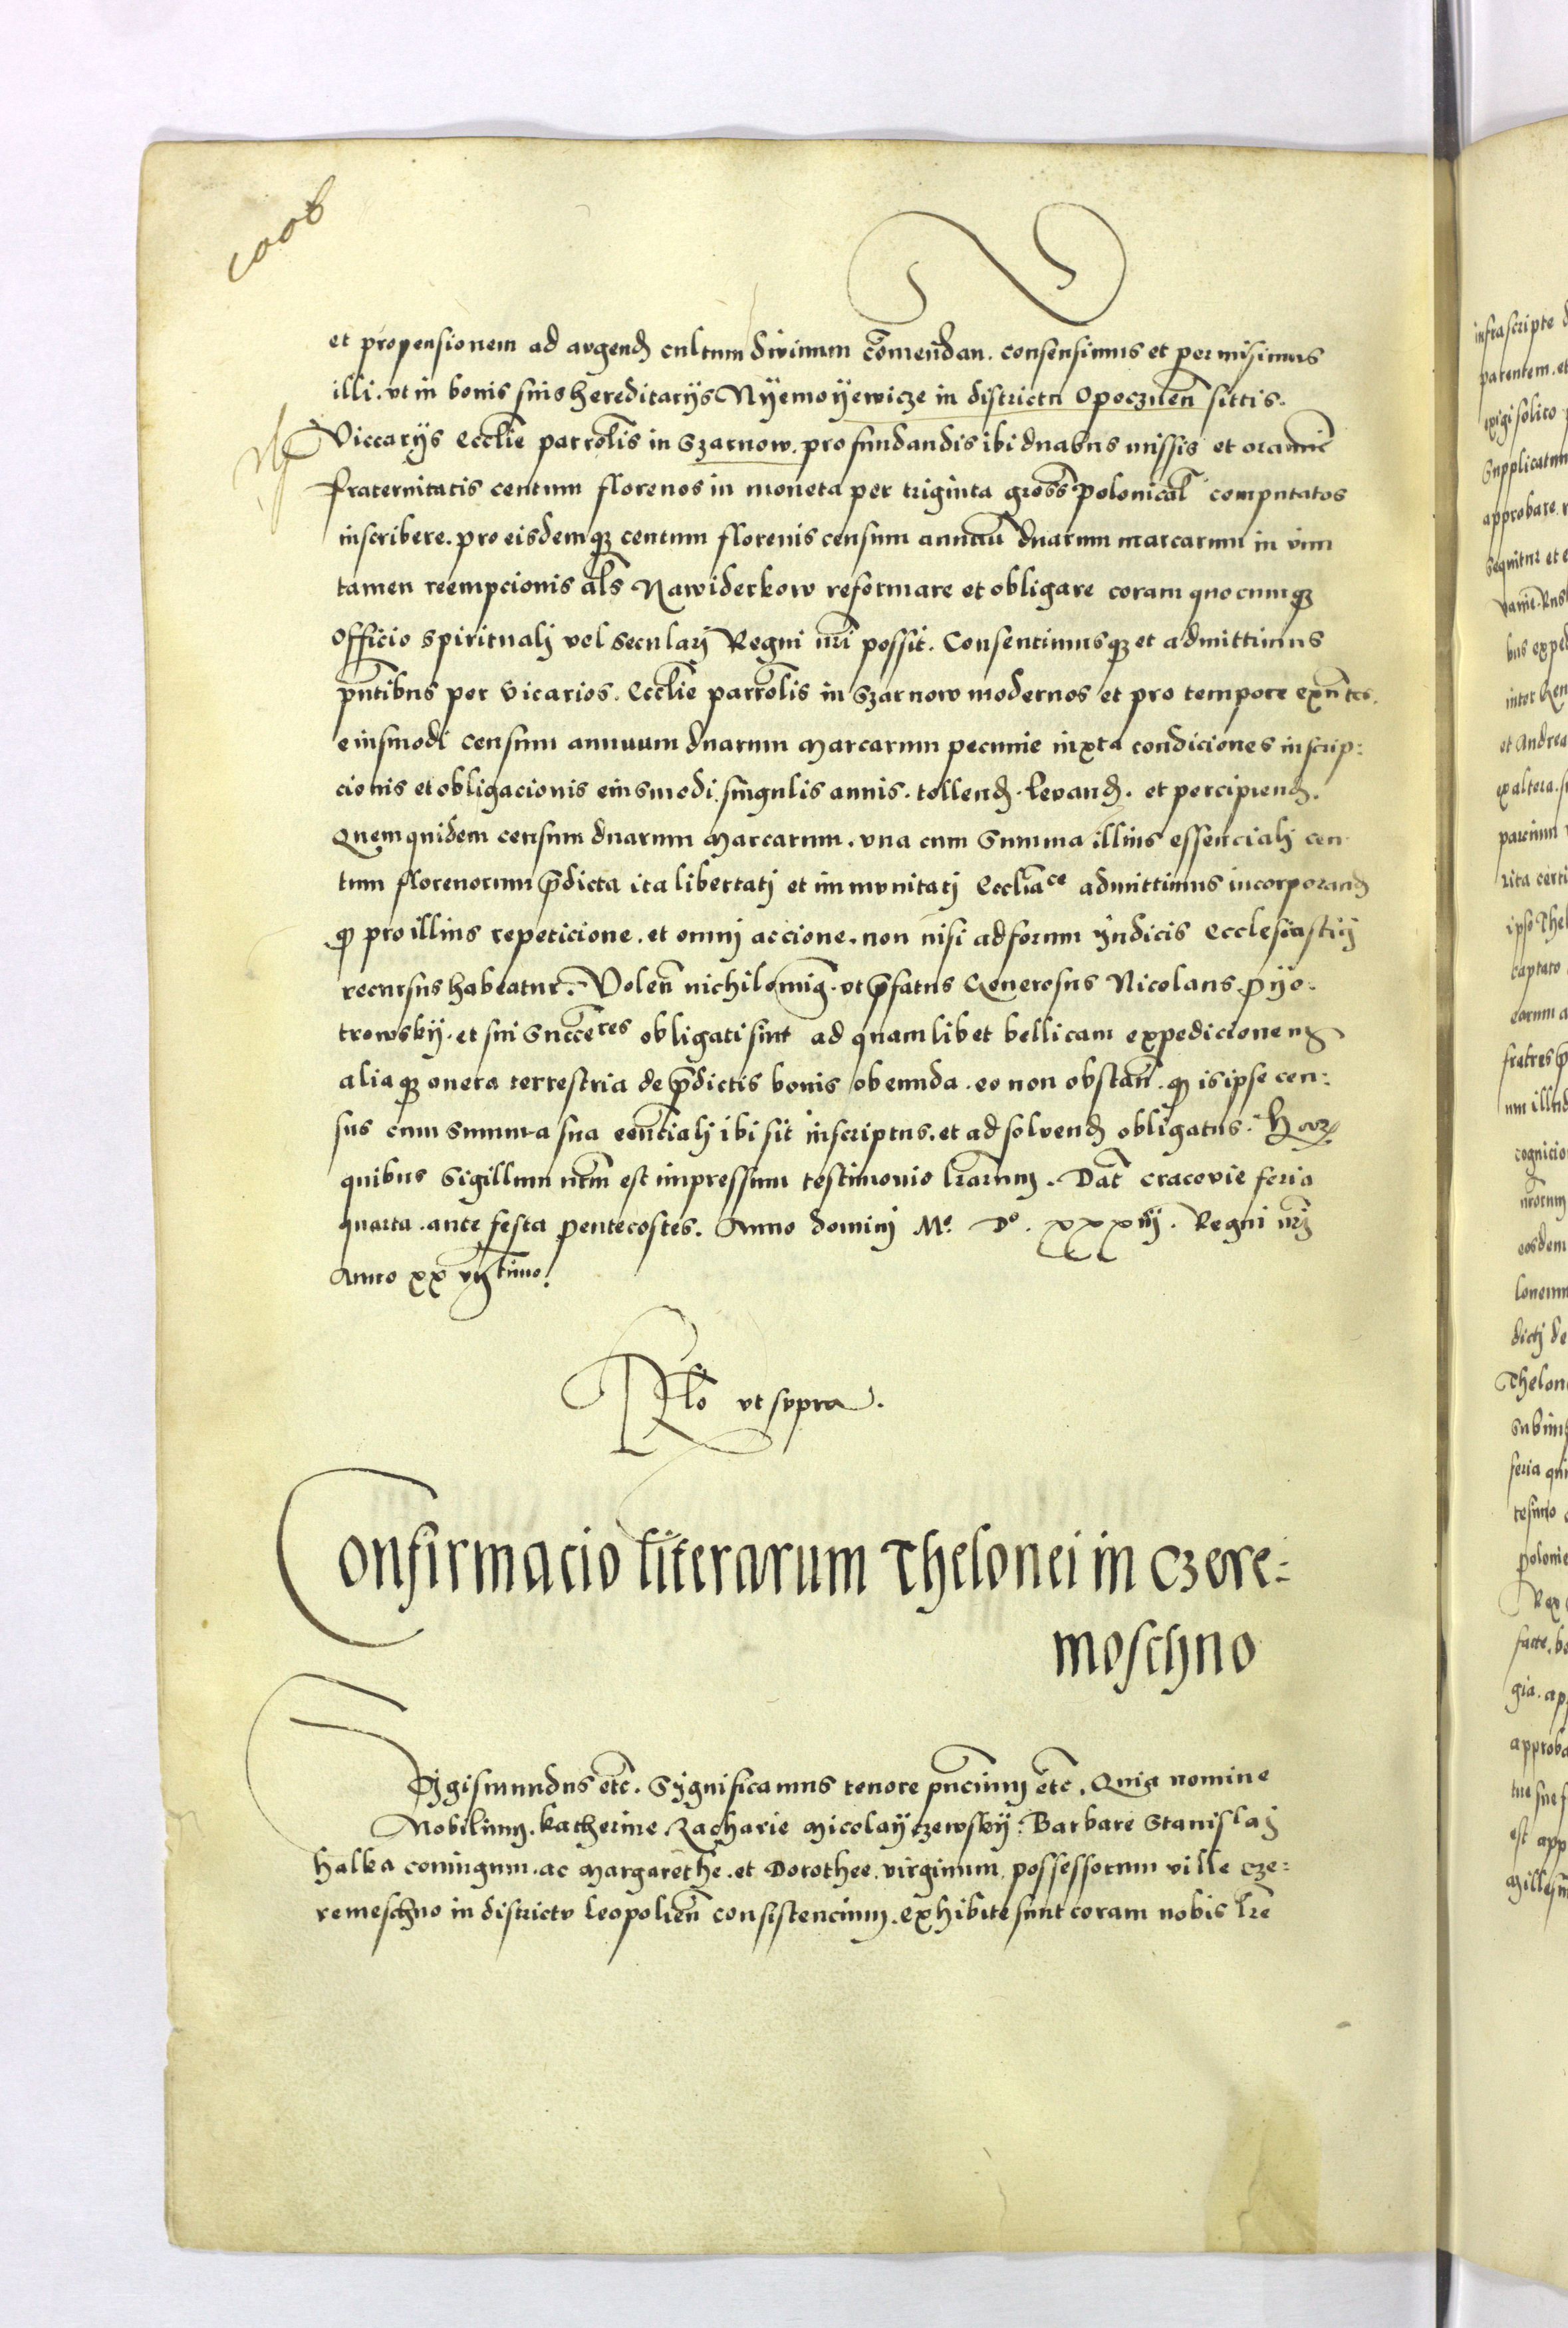 et propensionem ad augend cultum divinum com̄endan. consensimus et permisimus
illi. vt in bonis suis hereditarijs Nyemoyewicze in districtu Opocznen̄ sittis.
Viccarijs Eccl̄ie parrol̄is in Szarnow. pro fundandis ibi duabus missis et
fraternitatis centum florenos in moneta per triginta gross̄ polonical̄ computatos
inscribere. pro eisdemq centum florenis censum annuū duarum marcarum in vim
tamen reempcionis al̄s Nawiderkow reformare et obligare coram quocumq
officio spiritualj vel secularj Regni nr̄i possit. Consentimusq et admittimus
pn̄tibus per Vicarios. Eccl̄ie parrol̄is in Szarnow modernos et pro tempore exn̄tes.
eiusmodi censum annuum duarum marcarum pecunie iuxta condiciones inscrip:
cionis et obligacionis eiusmodi. singulis annis. tollend. levand. et percipiend.
Quemquidem censum duarum marcarum. vna cum Summa illius essencialj cen
tum florenorum p̄dicta ita libertatj et immvnitatj Eccl̄iace admittimus incorporand
q pro illius repeticione. et omnj accione. non nisi ad forum Judicis Ecclesiastij
recursus habeatur. Volen̄ nichilomin. vt p̄fatus Generosus Nicolaus Pyo:
trowskÿ. et sui Succeres obligati sint ad quamlibet bellicam expedicionem
aliaq onera terrestria de p̄dictis bonis obeunda. eo non obstan̄. q is ipse cen:
sus cum summa sua een̄cialj ibi sit inscriptus. et ad solvend obligatus. Har
quibus Sigillum nr̄m est impressum testimonio lr̄arum. Dat̄ Cracovie feria
quarta. ante festa pentecostes. Anno dominj Mo. Do. xxxiij. Regni nr̄j
Anno xx vijtimo.
Rlo vt supra.
Confirmacio literarum Thelonei in Czere:
moschno
Sigismundus etc̄. Significamus tenore pn̄cium etc̄. Quia nomine
Nobilium. Katherine. Zacharie Micolaÿczewskÿ: Barbare Stanislaj
halka coniugum. ac Margarethe. et Dorothee. virginum possessorum ville cze:
remeschno in districtu Leopolien̄ consistencium. exhibite sunt coram nobis lr̄e